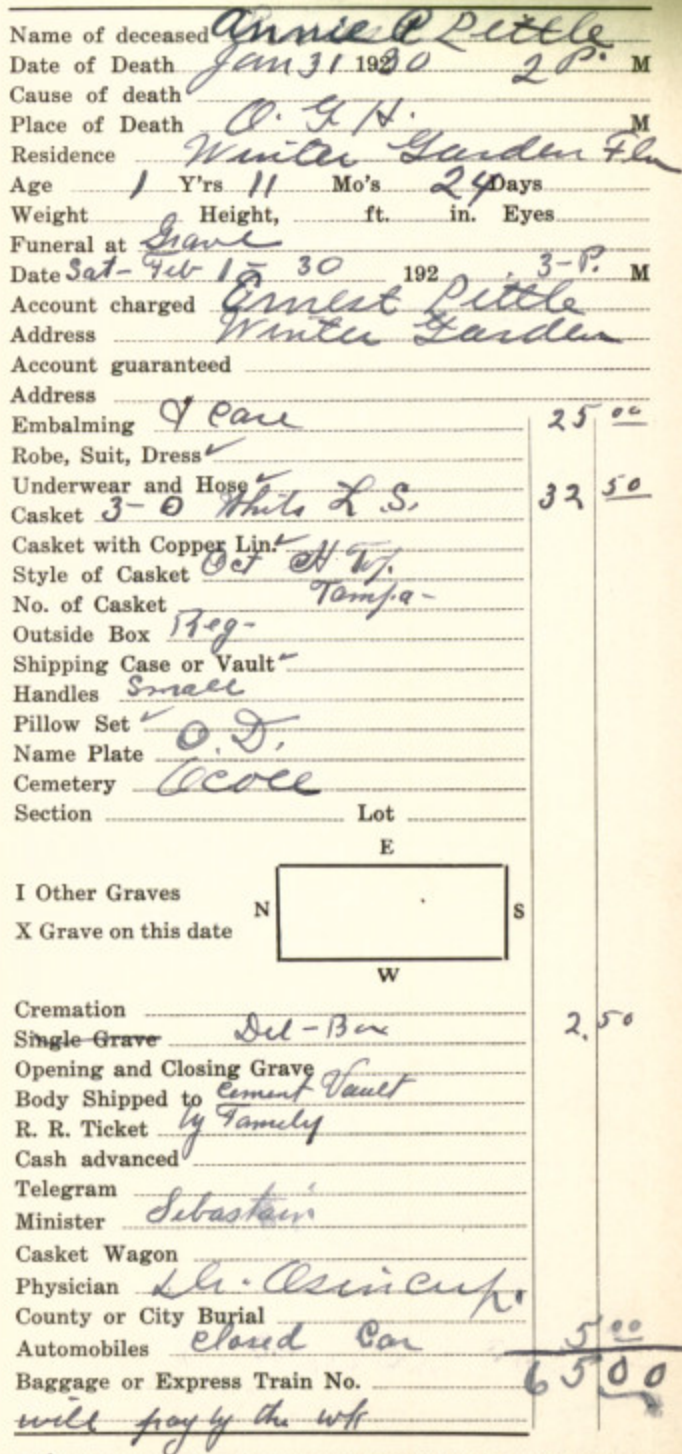 Name of deceased Annie P Little
Date of Death Jan 31 1930 2 P. M
Cause of death
Place of Death O. G H. M
Residence Winter Garden Fla
Age 1 Y'rs 11 Mo's 24 Days
Weight Height, ft. in. Eyes
Funeral at Grave
Date Sat- Feb 1 - 30 192 3-P. M
Account charged Ernest Little
Address Winter Garden
Account guaranteed
Address
Embalming & Care 25 00
Robe, Suit, Dress ✓
Underwear and Hose ✓
Casket 3-0 White L. S. 32 50
Casket with Copper Lin. ✓
Style of Casket Oct H Top.
No. of Casket Tampa-
Outside Box Reg-
Shipping Case or Vault ✓
Handles Small
Pillow Set ✓
Name Plate O. D.
Cemetery Ocoee
Section Lot
E
I Other Graves
N S
X Grave on this date
W
Cremation
Single Grave Del-Box 2.50
Opening and Closing Grave
Body Shipped to Cement Vault
R. R. Ticket by Family
Cash advanced
Telegram
Minister Sebastain
Casket Wagon
Physician Dr. Osincup.
County or City Burial
Automobiles Closed Car 5 00
Baggage or Express Train No. 65 00
will pay by the wk